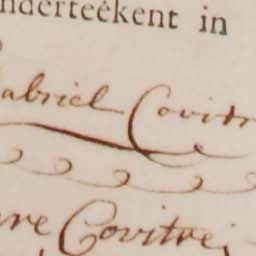 nderteékent in
abriel Covitr
re Covitrei